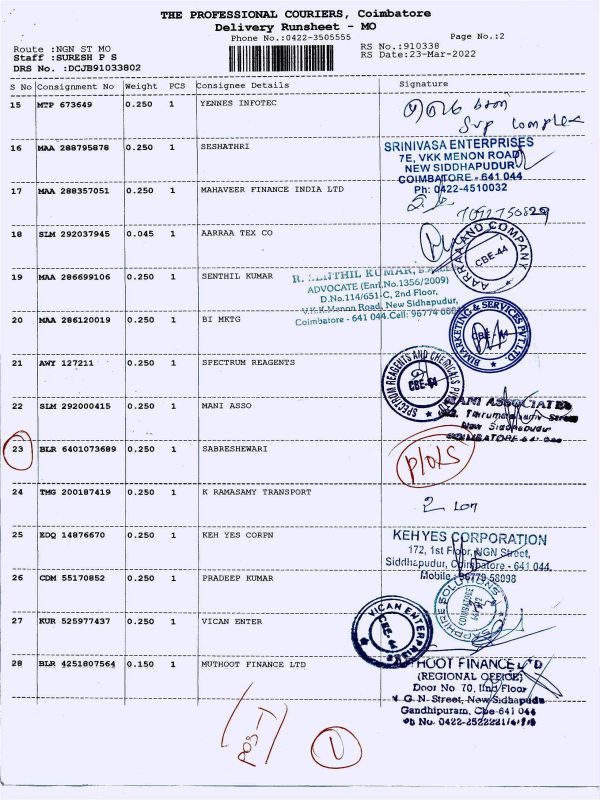 THE PROFESSIONAL COURIERS, Coimbatore
Delivery Runsheet - MO
Phone No.:0422-3505555
Page No.:2
Route :NGN ST MO
RS No.:910338
Staff :SURESH P S
RS Date:23-Mar-2022
DRS No. :DCJB91033802
S No Consignment No Weight PCS Consignee Details Signature
15 MTP 673649 0.250 1 YENNES INFOTEC
Svp Complex
16 MAA 288795878 0.250 1 SESHATHRI
SRINIVASA ENTERPRISES
7E, VKK MENON ROAD
NEW SIDDHAPUDUR
COIMBATORE - 641 044
Ph: 0422-4510032
17 MAA 288357051 0.250 1 MAHAVEER FINANCE INDIA LTD
7092756829
18 SLM 292037945 0.045 1 AARRAA TEX CO
AARRAA AND COMPANY
CBE-44
19 MAA 286699106 0.250 1 SENTHIL KUMAR
R. SENTHIL KUMAR,
ADVOCATE (Enrl.No.1356/2009)
D.No.114/651-C, 2nd Floor,
V.K.K.Menon Road, New Sidhapudur,
Coimbatore - 641 044.Cell: 96774
20 MAA 286120019 0.250 1 BI MKTG
BIMARKETING & SERVICES PVT.LTD
CBE-44
21 AWY 127211 0.250 1 SPECTRUM REAGENTS
SPECTRUM REAGENTS AND CHEMICALS
CBE-44
22 SLM 292000415 0.250 1 MANI ASSO
MANI ASSOCIATES
Street
New Siddhapudur
COIMBATORE 641
23 BLR 6401073689 0.250 1 SABRESHEWARI
24 TMG 200187419 0.250 1 K RAMASAMY TRANSPORT
25 EDQ 14876670 0.250 1 KEH YES CORPN
KEH YES CORPORATION
172, 1st Floor, NGN Street,
Siddhapudur, Coimbatore - 641 044.
Mobile : 96779 58098
26 CDM 55170852 0.250 1 PRADEEP KUMAR
SAPPHIRE SOLUTIONS
COIMBATORE
27 KUR 525977437 0.250 1 VICAN ENTER
VICAN ENTERPRISES
28 BLR 4251807564 0.150 1 MUTHOOT FINANCE LTD
MUTHOOT FINANCE LTD
(REGIONAL OFFICE)
Door No 70, IInd Floor
N G. N. Street, New Sidhapudu
Gandhipuram, Cbe-641 044
POST
1